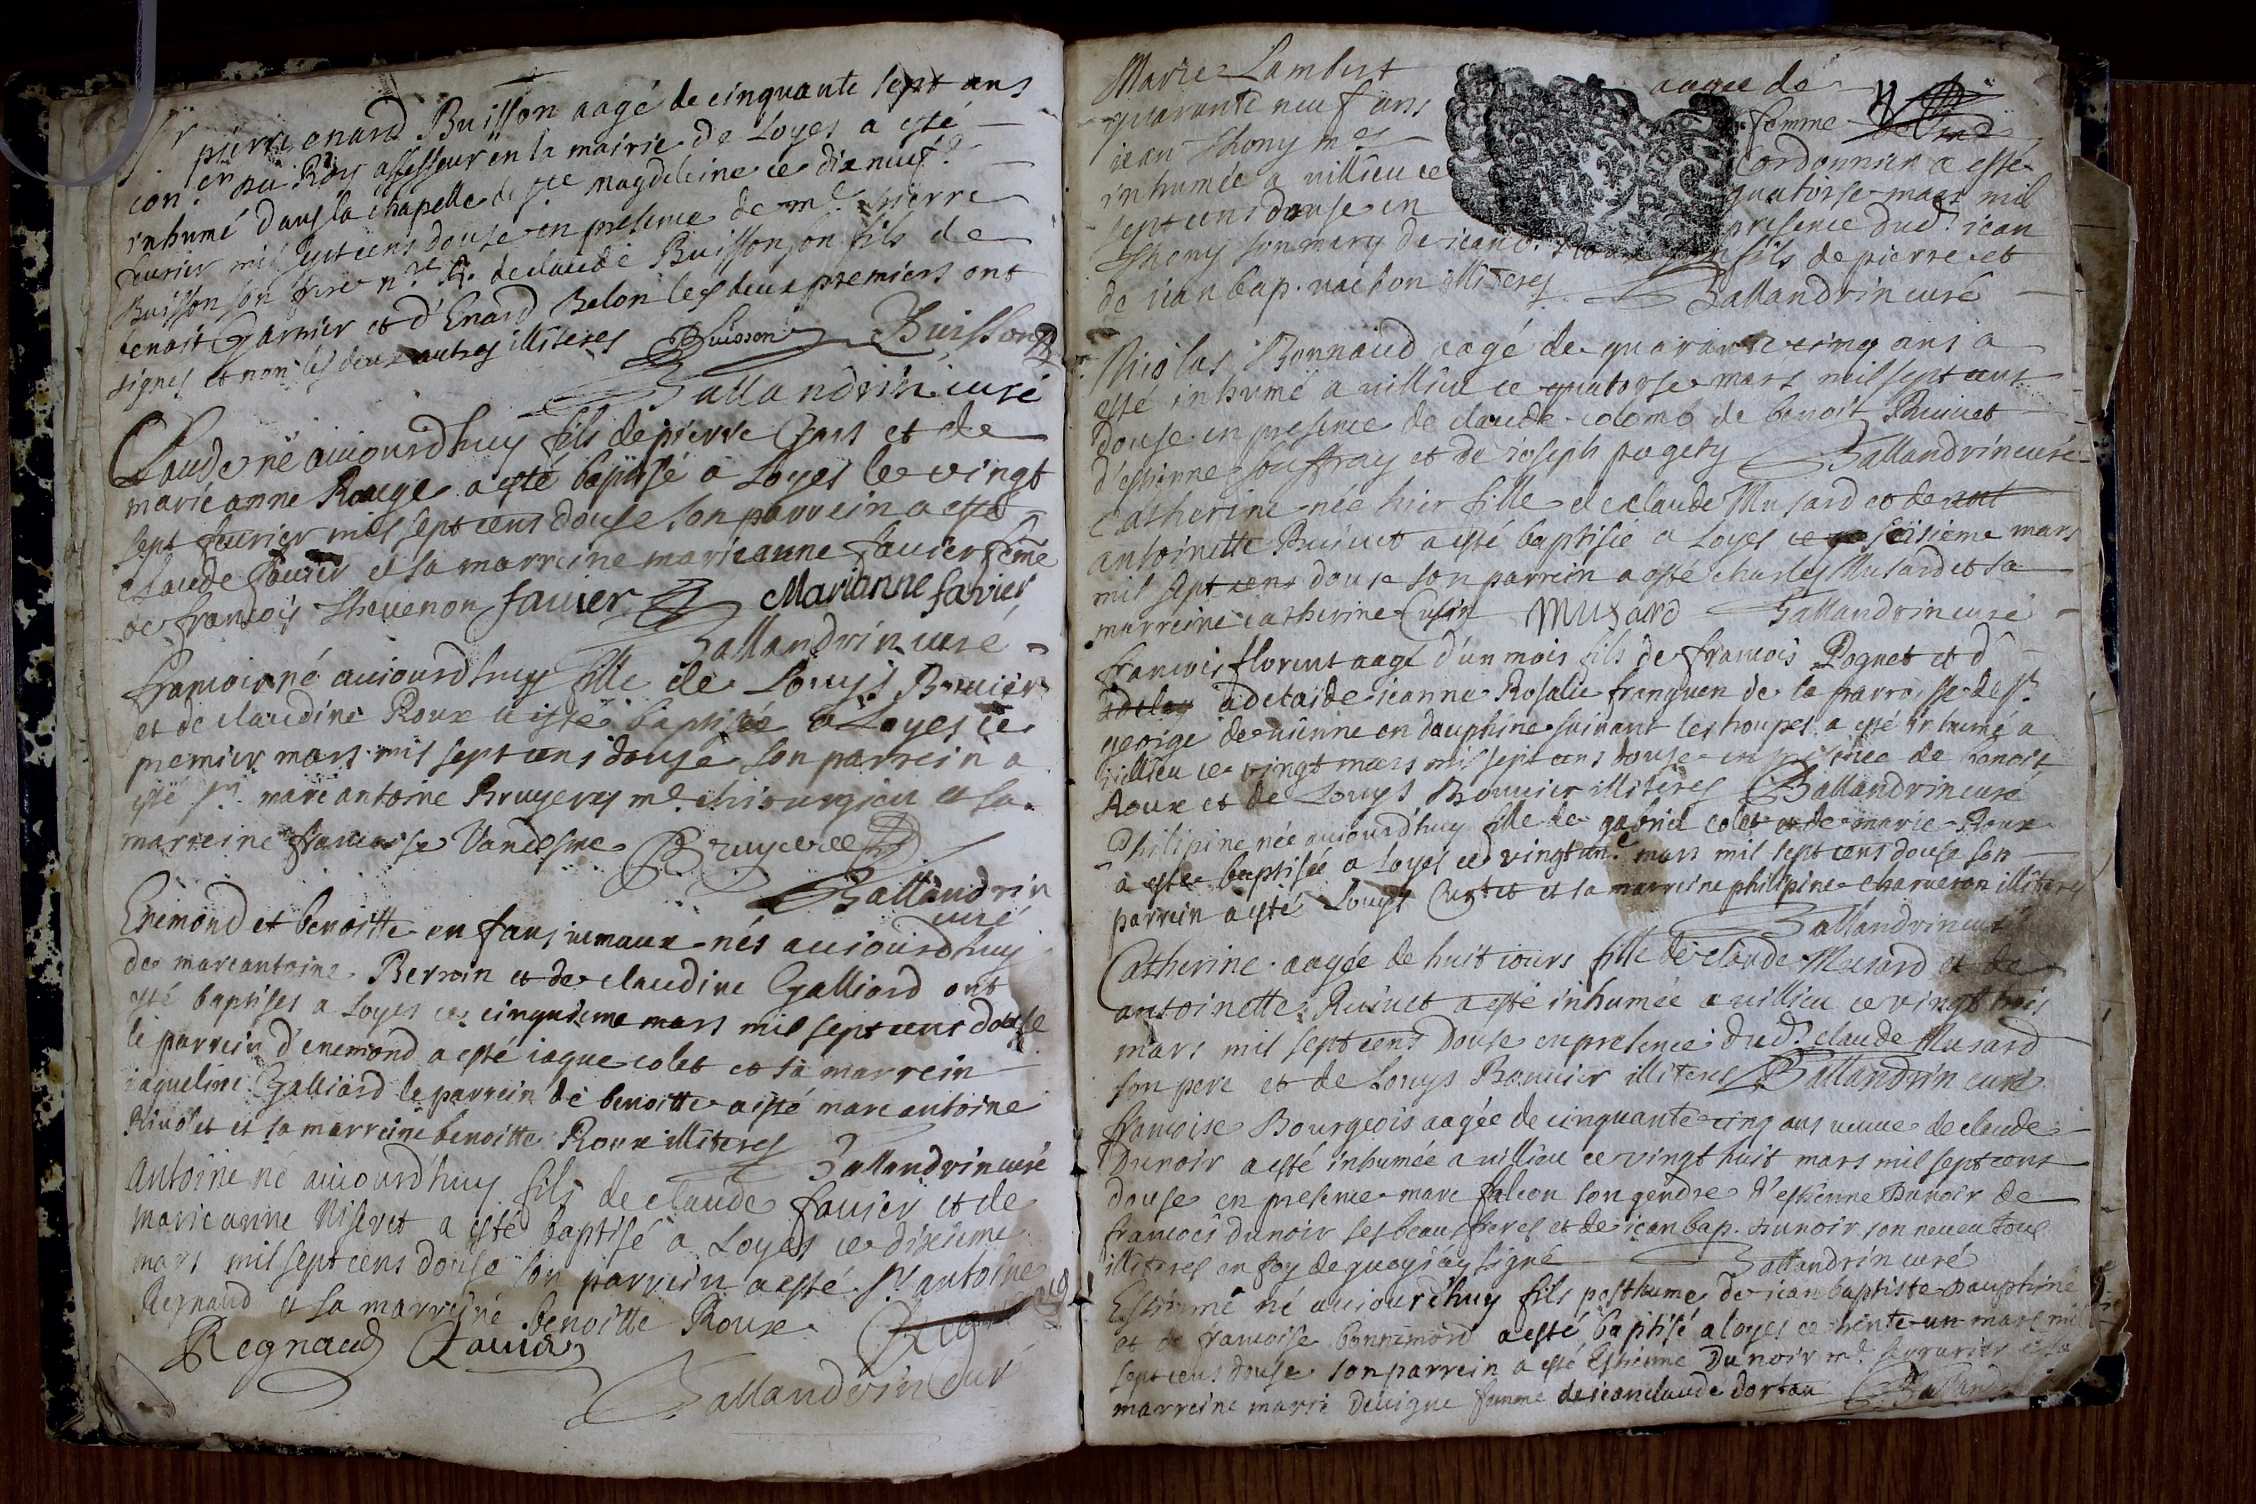 Sr pierre enard Buisson aagé de cinquante sept ans
con.er du Roy assesseur en la mairie de Loyes a esté
inhumé dans la chapelle de ste magdeleine ce dix neuf.e
feurier mil sept cens douse en presence de me pierre
Buisson son frere n.re R. de claude Buisson son fils de
benoit Garnier et d'Enard Belon les deux premiers ont
signes et non les deux autres illiteres Buisson Buisson
Ballandrin curé
Claude né auiourdhuy fils de pierre Gars et de
marie anne Rouge a esté baptisé a Loyes le vingt
sept feurier mil sept cens douse son parrein a esté
claude fauier et sa marreine marieanne fauier feme
de francois Theuenon fauier Marianne favier
Ballandrin curé
francoise né auiourdhuy fille de Louys Bouuier
et de claudine Roux a esté baptisée a Loyes ce
premier mars mil sept cens douse son parrein a
esté sr marc antoine Bruyeres me chirurgien et sa
marreine francoise Vandesme Bruyeres
Ballandrin
curé
Enemond et benoitte enfans iumaux nés auiourdhuy
de marcantoine Berroin et de claudine Galliard ont
esté baptises a Loyes ce cinquieme mars mil sept cens douse
le parrein d'enemond a esté iaque colet et sa marrein
iaqueline Galliard le parrein de benoitte a esté marc antoine
Riuolet et sa marreine benoitte Roux illiteres
Ballandrin curé
Antoine né auiourdhuy fils de claude fauier et de
marieanne Niseret a esté baptisé a Loyes ce dixieme
mars mil sept cens douse son parrein a esté sr antoine
Regnaud et sa marreine benoitte Roux
Regnaud fauier
Ballandrin curé
Marie Lambert aagée de
quarante neuf ans femme
iean Thony me cordonnier a esté
inhumée a uillieu ce quatorse mars mil
sept cens douse en presence dud. iean
Thony son mary de iean fils de pierre et
de iean bap. uachon illiteres Ballandrin curé
Nicolas Bonnaud aagé de quarante cinq ans a
esté inhumé a uillieu ce quatorse mars mil sept cens
douse en presence de claude colomb de benoit Ruiuet
d'estienne souffray et de ioseph pugety Ballandrin curé
Catherine née hier fille de claude Musard et de
antoinette Ruiuet a esté baptisée a Loyes ce seisieme mars
mil sept cens douse son parrein a esté charles Musard et sa
marreine catherine Cusin Musard Ballandrin curé
francois florent aagé d'un mois fils de francois Poguet et d
adelaide ieanne Rosalie franquen de la parroisse de st
george de uienne en dauphiné suiuant les troupes a esté inhumé a
uillieu ce vingt mars mil sept cens douse en presence de benoit
Roux et de Louys Bouuier illiteres Ballandrin curé
Philipine née auiourdhuy fille de gabriel colet et de marie Roux
a esté baptisée a loyes ce vingt un.e mars mil sept cens douse son
parrein a esté Louys Curtet et sa marreine philipine charueron illiteres
Ballandrin curé
Catherine aagée de huit iours fille de claude Musard et de
antoinette Ruiuet a esté inhumée a uillieu ce vingt trois
mars mil sept cens douse en presence dud. claude Musard
son pere et de Louys Bouuier illiteres Ballandrin curé
francoise Bourgeois aagée de cinquante cinq ans ueuue de claude
Dunoir a esté inhumée a uillieu ce vingt huit mars mil sept cens
douse en presence marc falcon son gendre d'estienne Dunoir de
francois dunoir ses beaus freres et de iean bap. dunoir son neueu tous
illiteres en foy de quoy iay signé Ballandrin curé
Estienne né auiourdhuy fils posthume de iean baptiste dauphiné
et de francoise bonnemord a esté baptisé a loyes ce trente un mars mil
sept cens douse son parrein a esté Estienne Dunoir me serrurier et sa
marreine marie Deuigne femme de ieanclaude dortan Ballandrin